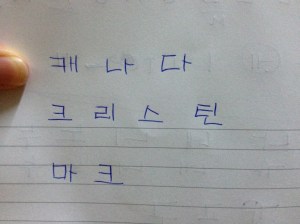 캐 나 다
크 리 스 틴
마 크